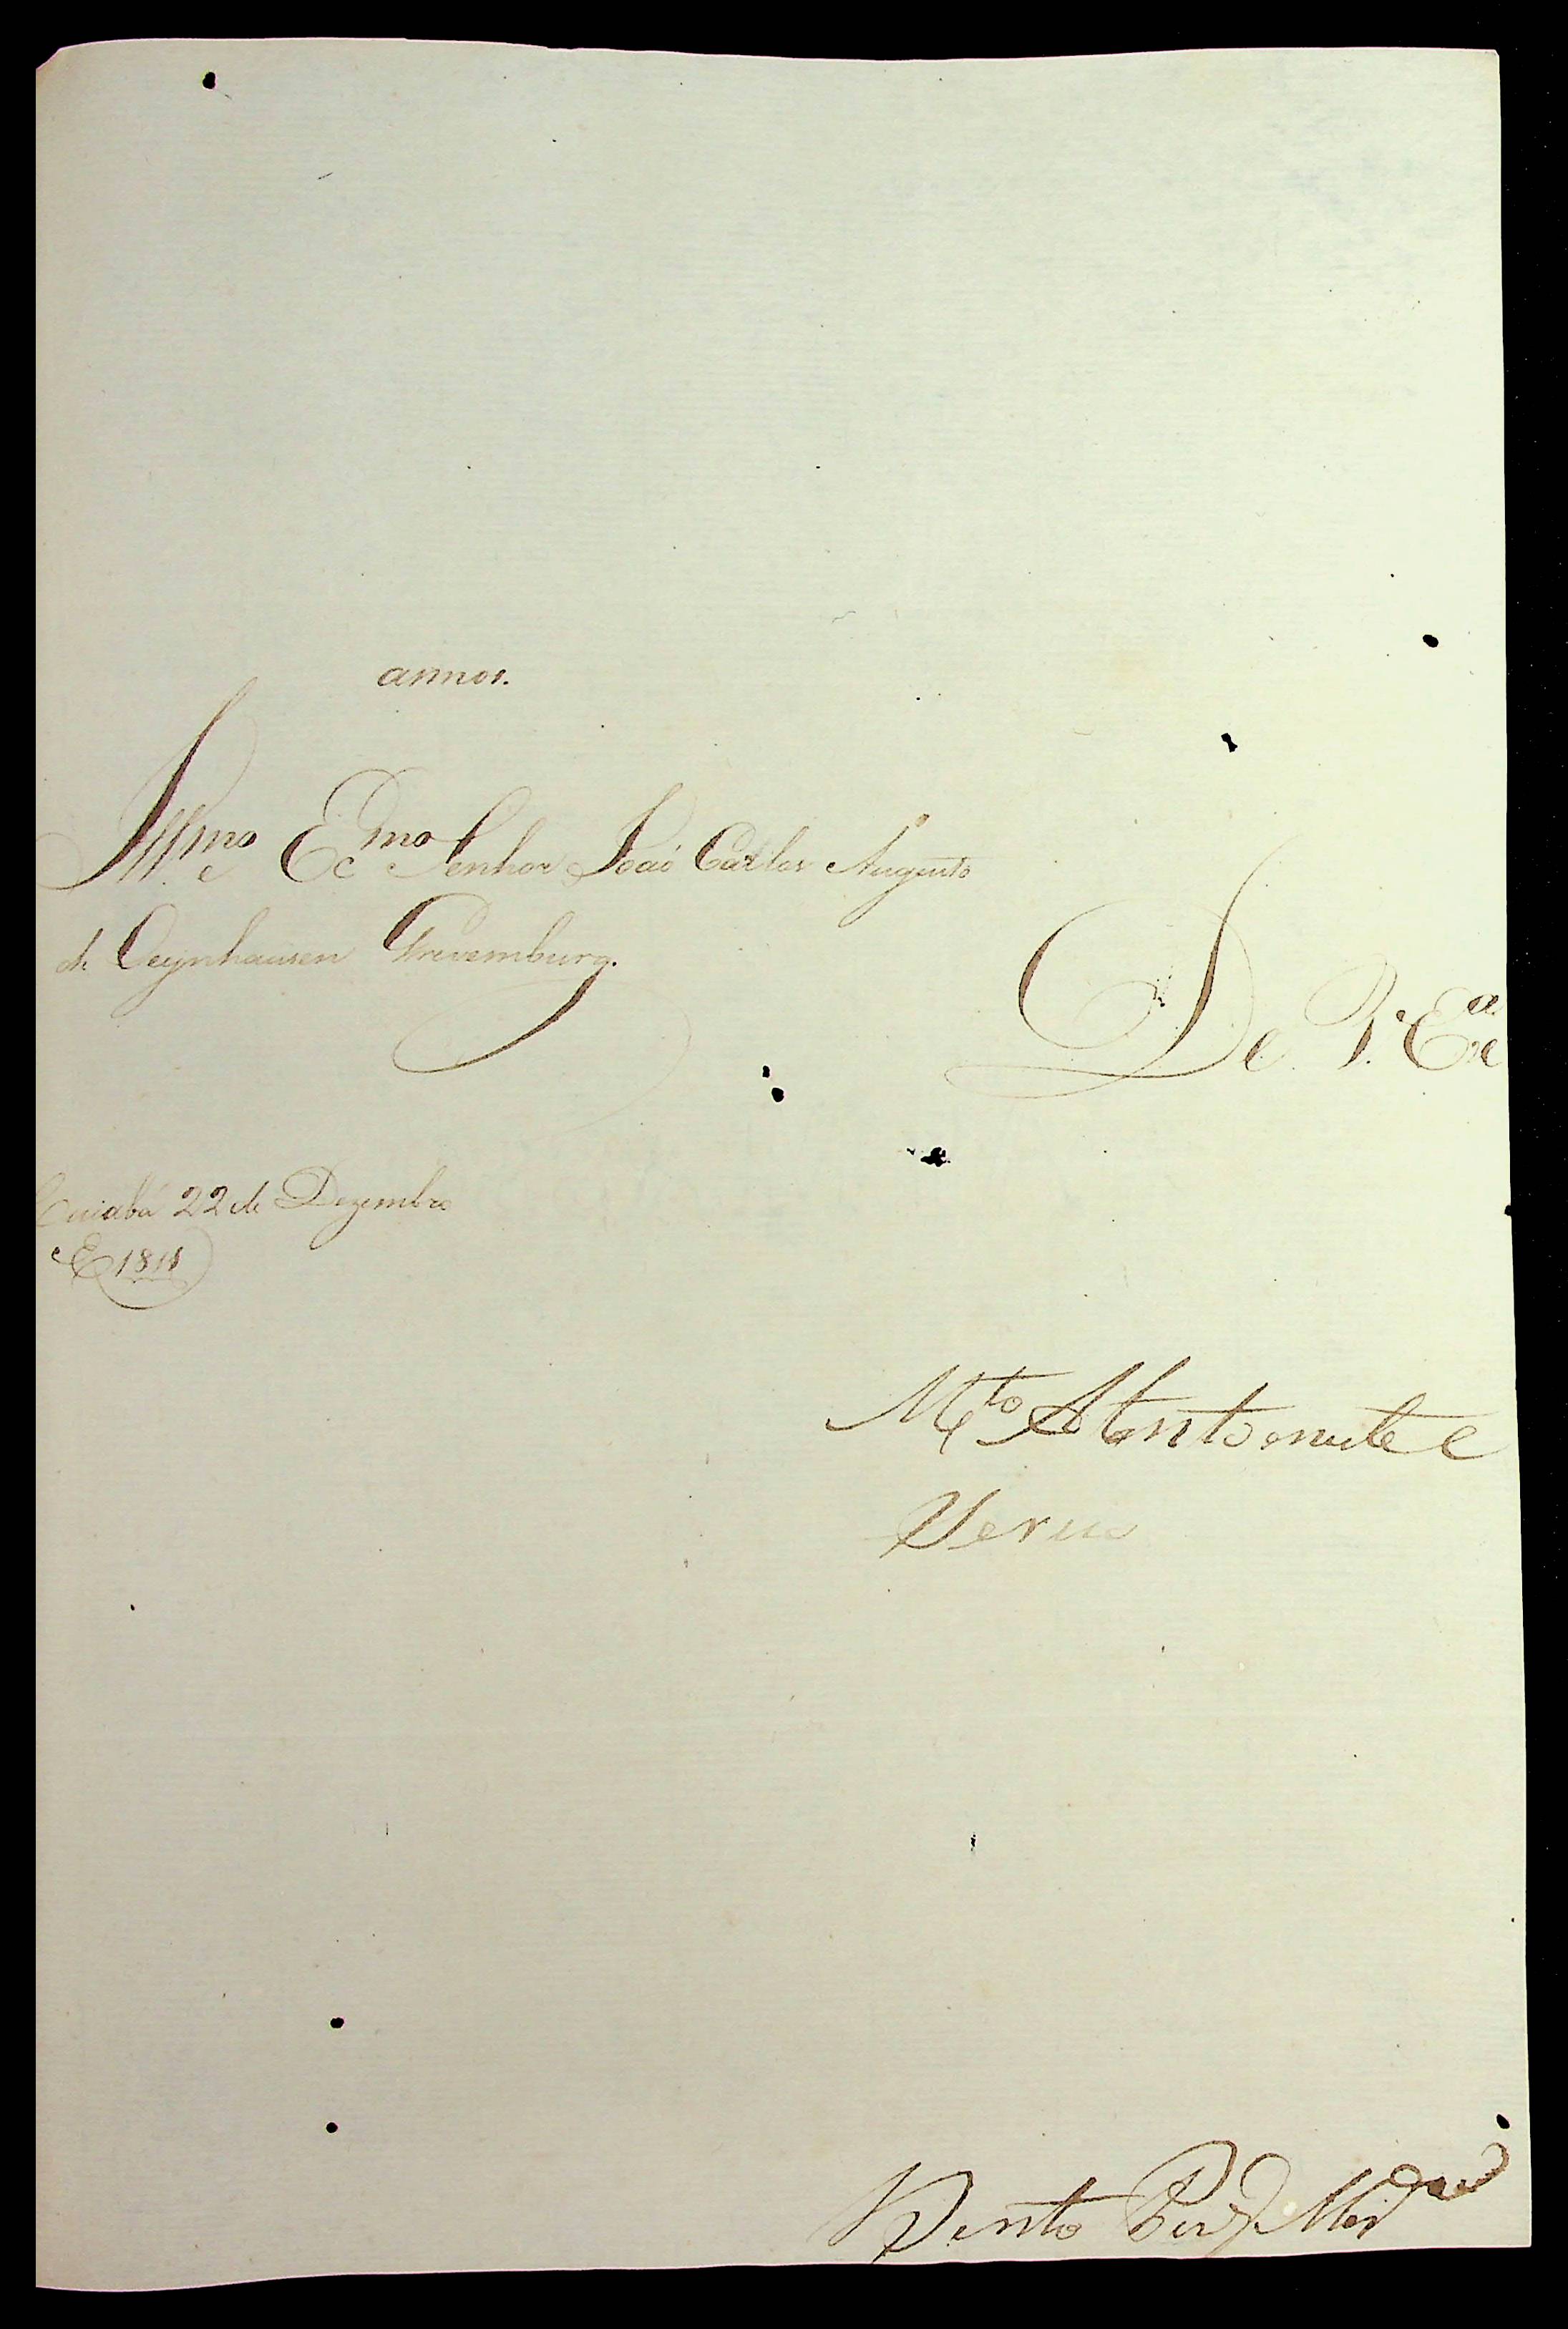 annos.
Illmo e Ecmo Senhor João Carlos Augusto
de Oeynhausen Grevemburg.
De V. Exca
Cuiabá 22 de Dezembro
E 1811
Mto Atento e
Vener
Bento